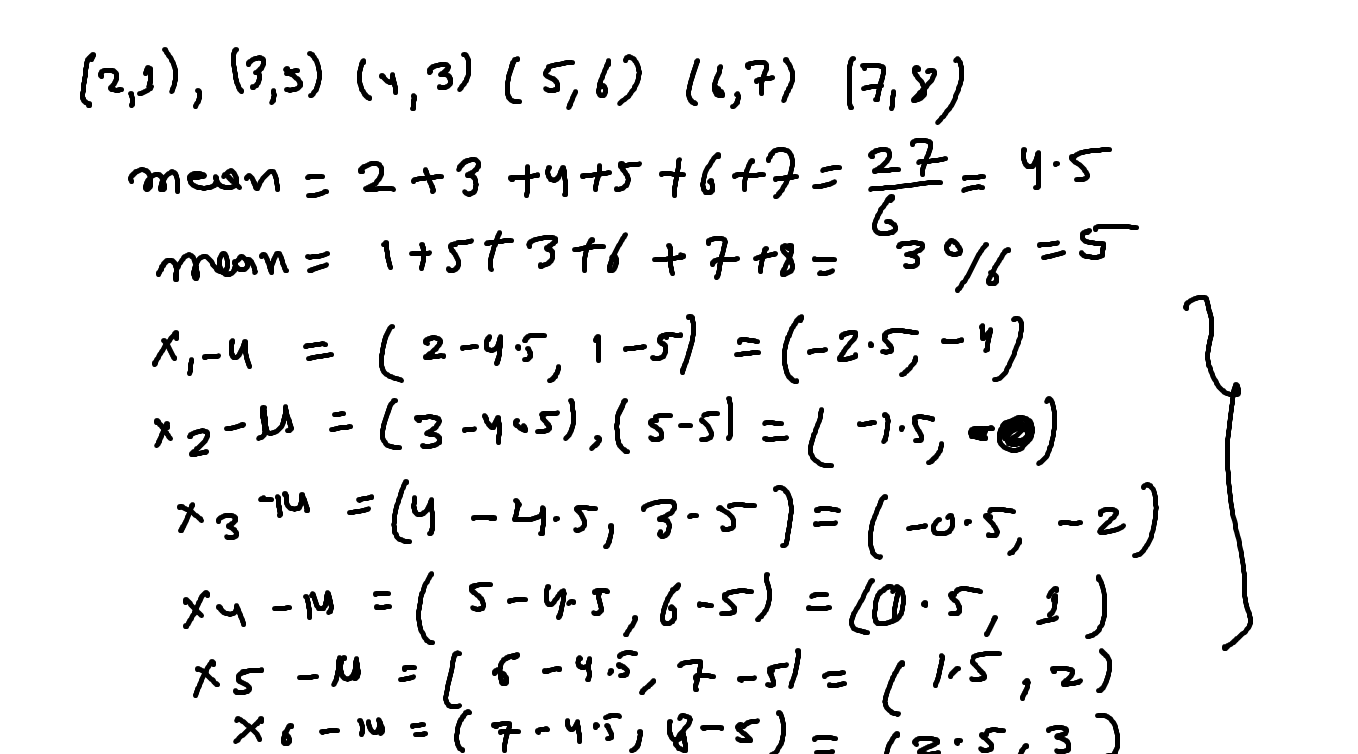 (2,1), (3,5) (4,3) (5,6) (6,7) (7,8)
mean = 2+3+4+5+6+7 = 27/6 = 4.5
mean = 1+5+3+6+7+8 = 30/6 = 5
x₁-μ = (2-4.5, 1-5) = (-2.5, -4)
x₂-μ = (3-4.5),(5-5) = (-1.5, -0)
x₃-μ = (4-4.5, 3-5) = (-0.5, -2)
x₄-μ = (5-4.5, 6-5) = (0.5, 1)
x₅-μ = (6-4.5, 7-5) = (1.5, 2)
x₆-μ = (7-4.5, 8-5) = (2.5, 3)